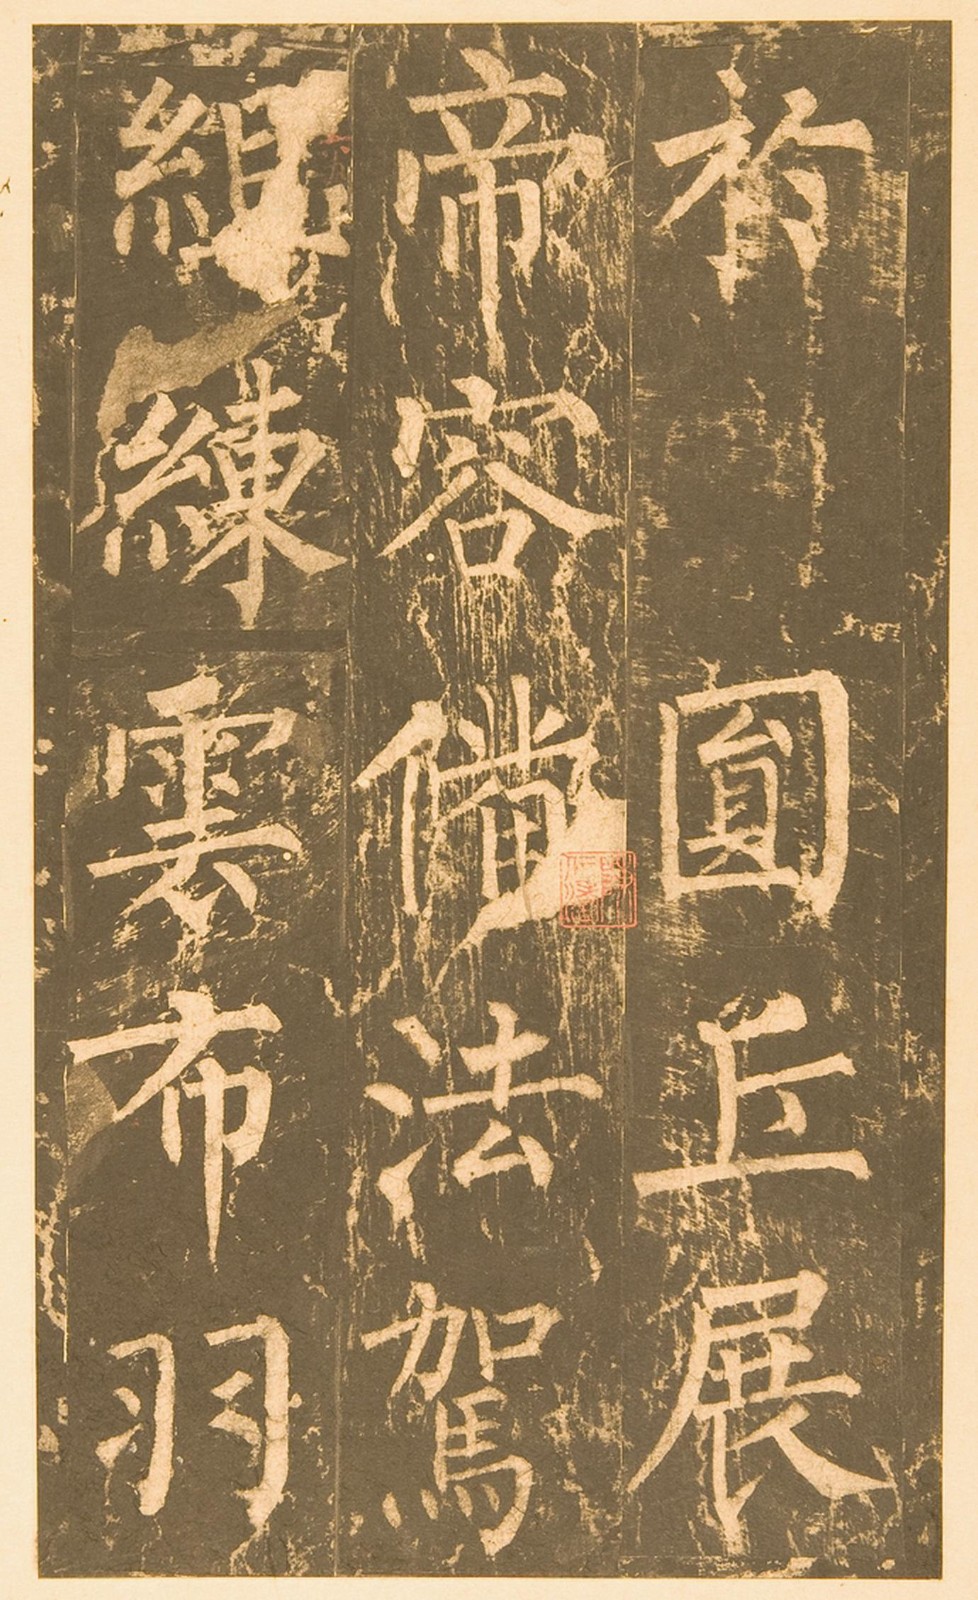 於圓丘展
帝容備法駕
組練雲布羽